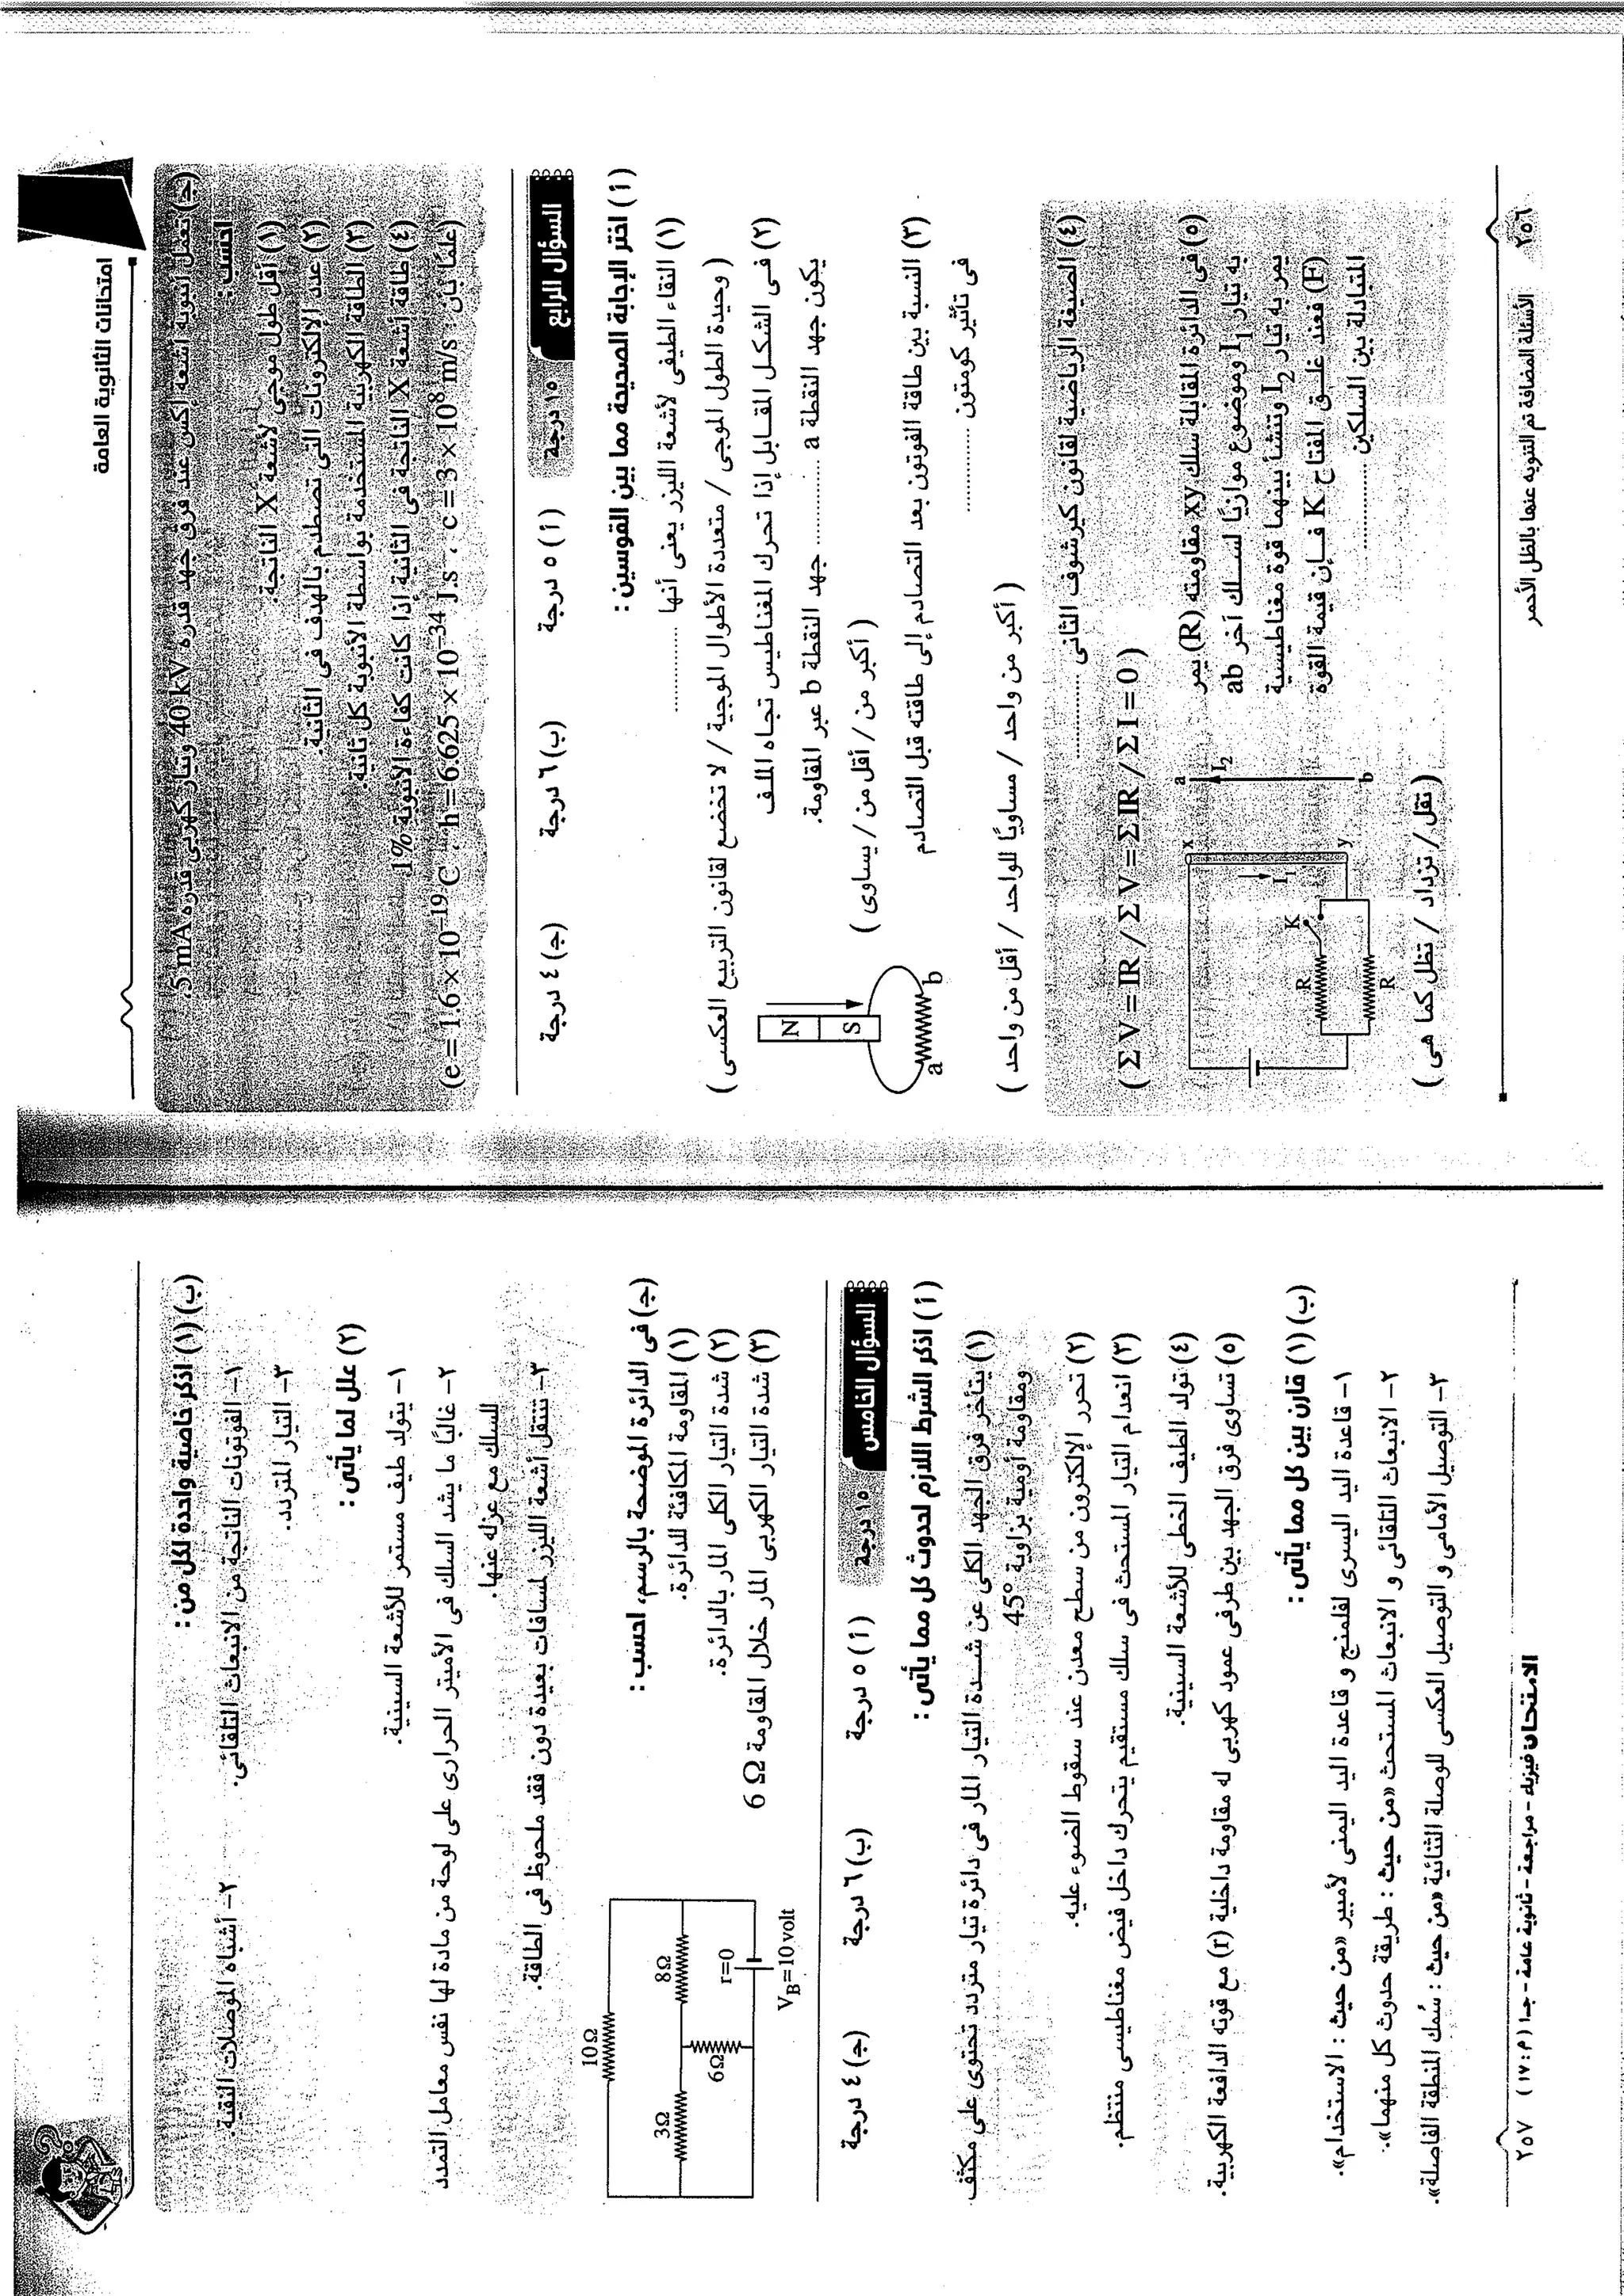 امتحانات الثانوية العامة
(جـ) تعمل أنبوبة أشعة إكس عند فرق جهد قدره 40 kV وتيار كهربى قدره 5 mA،
احسب :
(١) أقل طول موجى لأشعة X الناتجة.
(٢) عدد الإلكترونات التى تصطدم بالهدف فى الثانية.
(٣) الطاقة الكهربية المستخدمة بواسطة الأنبوبة كل ثانية.
(٤) طاقة أشعة X الناتجة فى الثانية إذا كانت كفاءة الأنبوبة 1%
(علمًا بأن : e = 1.6 × 10⁻¹⁹ C ، h = 6.625 × 10⁻³⁴ J.s ، c = 3 × 10⁸ m/s)
السؤال الرابع ١٥ درجة (أ) ٥ درجة (ب) ٦ درجة (جـ) ٤ درجة
(أ) اختر الإجابة الصحيحة مما بين القوسين :
(١) النقاء الطيفى لأشعة الليزر يعنى أنها ..............
(وحيدة الطول الموجى / متعددة الأطوال الموجية / لا تخضع لقانون التربيع العكسى)
(٢) فى الشكل المقابل إذا تحرك المغناطيس تجاه الملف
يكون جهد النقطة a .............. جهد النقطة b عبر المقاومة.
(أكبر من / أقل من / يساوى)
N
S
a
b
(٣) النسبة بين طاقة الفوتون بعد التصادم إلى طاقته قبل التصادم
فى تأثير كومتون ..............
(أكبر من واحد / مساويًا للواحد / أقل من واحد)
(٤) الصيغة الرياضية لقانون كيرشوف الثانى ..............
(Σ V = IR / Σ V = Σ IR / Σ I = 0)
(٥) فى الدائرة المقابلة سلك xy مقاومته (R) يمر
به تيار I₁ وموضوع موازيًا لسلك آخر ab
يمر به تيار I₂ وتنشأ بينهما قوة مغناطيسية
(F) فعند غلق المفتاح K فإن قيمة القوة
المتبادلة بين السلكين ..............
(تقل / تزداد / تظل كما هى)
x
a
I₂
I₁
K
R
R
y
b
٢٥٦ الأسئلة المضافة تم التنويه عنها بالظل الأحمر
(ب) (١) اذكر خاصية واحدة لكل من :
١- الفوتونات الناتجة من الانبعاث التلقائى. ٢- أشباه الموصلات النقية.
٣- التيار المتردد.
(٢) علل لما يأتى :
١- يتولد طيف مستمر للأشعة السينية.
٢- غالبًا ما يشد السلك فى الأميتر الحرارى على لوحة من مادة لها نفس معامل التمدد
للسلك مع عزله عنها.
٣- تنتقل أشعة الليزر لمسافات بعيدة دون فقد ملحوظ فى الطاقة.
(جـ) فى الدائرة الموضحة بالرسم، احسب :
(١) المقاومة المكافئة للدائرة.
(٢) شدة التيار الكلى المار بالدائرة.
(٣) شدة التيار الكهربى المار خلال المقاومة 6 Ω
10Ω
3Ω
8Ω
6Ω
r=0
V_B=10 volt
السؤال الخامس ١٥ درجة (أ) ٥ درجة (ب) ٦ درجة (جـ) ٤ درجة
(أ) اذكر الشرط اللازم لحدوث كل مما يأتى :
(١) يتأخر فرق الجهد الكلى عن شدة التيار المار فى دائرة تيار متردد تحتوى على مكثف
ومقاومة أومية بزاوية 45°
(٢) تحرر الإلكترون من سطح معدن عند سقوط الضوء عليه.
(٣) انعدام التيار المستحث فى سلك مستقيم يتحرك داخل فيض مغناطيسى منتظم.
(٤) تولد الطيف الخطى للأشعة السينية.
(٥) تساوى فرق الجهد بين طرفى عمود كهربى له مقاومة داخلية (r) مع قوته الدافعة الكهربية.
(ب) (١) قارن بين كل مما يأتى :
١- قاعدة اليد اليسرى لفلمنج و قاعدة اليد اليمنى لأمبير «من حيث : الاستخدام».
٢- الانبعاث التلقائى و الانبعاث المستحث «من حيث : طريقة حدوث كل منهما».
٣- التوصيل الأمامى و التوصيل العكسى للوصلة الثنائية «من حيث : سُمك المنطقة الفاصلة».
الامتحان فيزياء - مراجعة - ثانوية عامة - جـ١ (م : ١٧) ٢٥٧